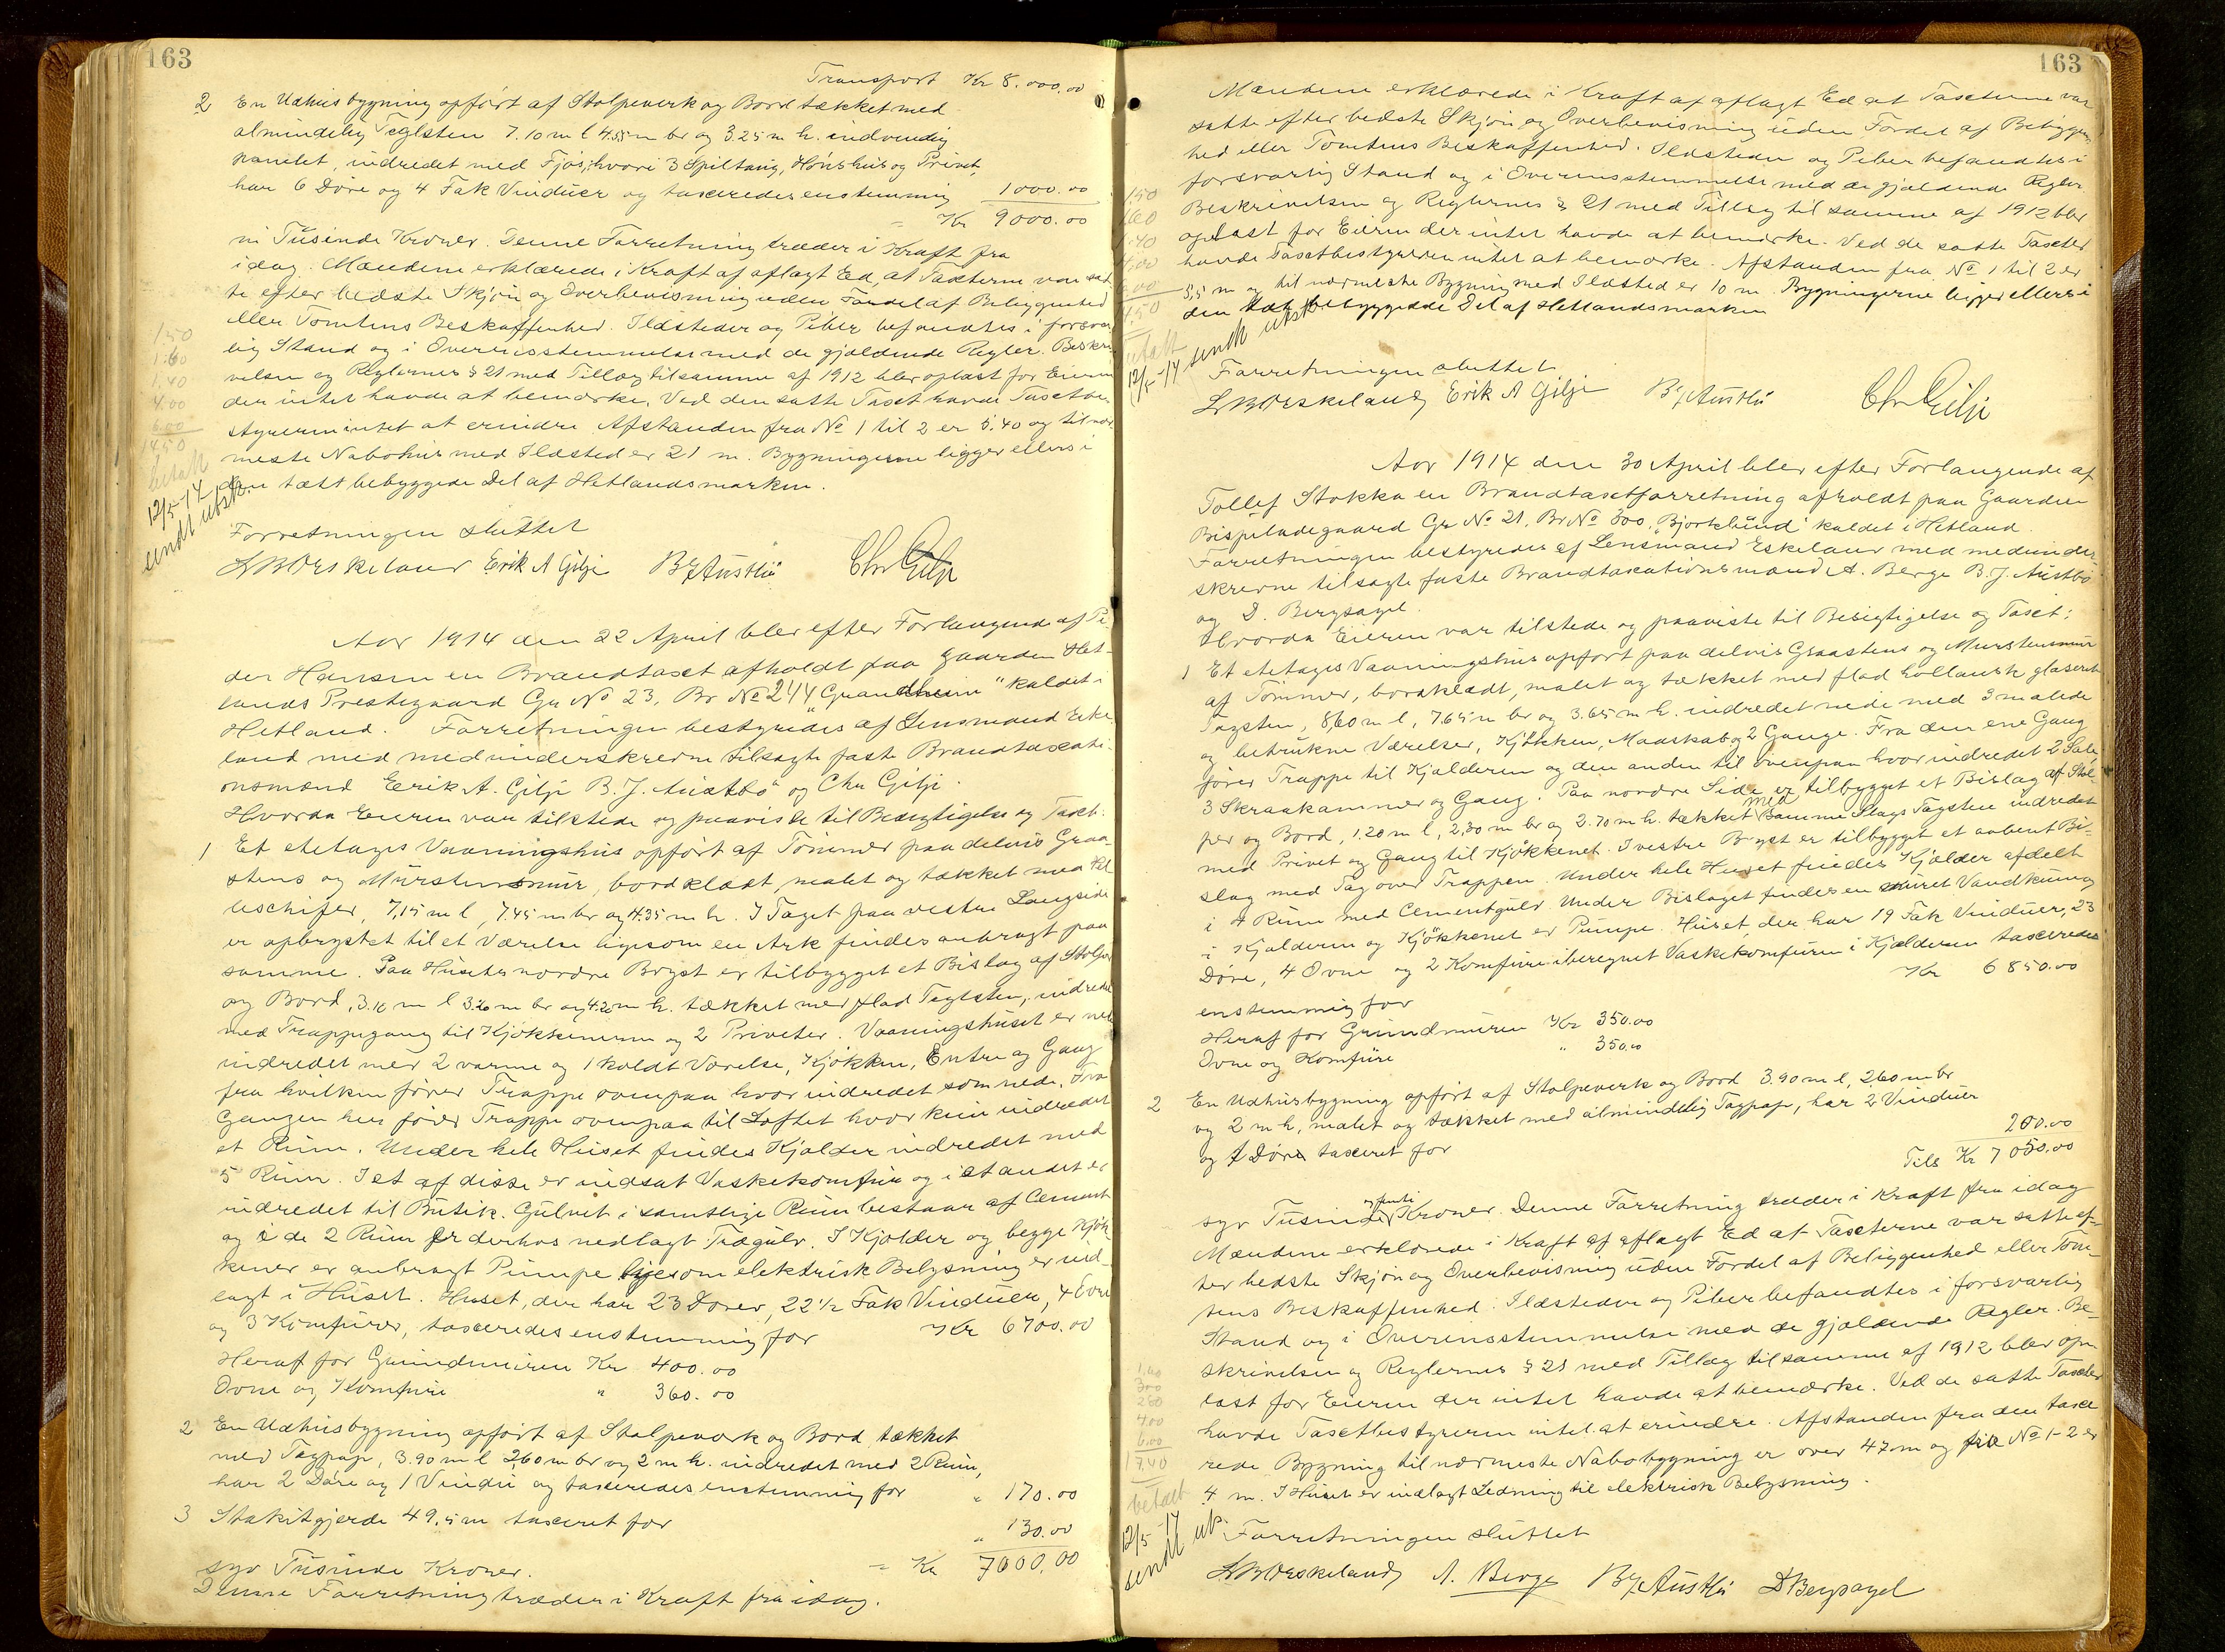 163
Transport Kr 8.000.00
2 En Udhusbygning opført af Stolpeverk og Bord tækket med
almindelig Teglsten 7.10 m l 4.55 m br og 3.25 m h. indvendig
panelet, indredet med Fjøs, hvori 3 Spiltaug, Hønshus og Privet,
har 6 Døre og 4 Fak Vinduer og taxeredes enstemmig 1000.00
= Kr 9000.00
ni Tusinde Kroner. Denne Forretning træder i Kraft fra
idag. Mændene erklærede i Kraft af aflagt Ed, at Taxterne var sat
te efter bedste Skjøn og Overbevisning uden Fordel af Beliggenhed
eller Tomtens Beskaffenhed. Ildsteder og Piber befandtes i forsvar
lig Stand og i Overensstemmelse med de gjældende Regler. Beskri
velsen og Reglernes § 21 med Tillæg til samme af 1912 blev oplæst for Eieren
der intet havde at bemærke. Ved den satte Taxt havde Taxtbe
styreren intet at erindre. Afstanden fra No 1 til 2 er 5.40 og til nær
meste Nabohus med Ildsted er 21 m. Bygningerne ligger ellers i
den tæt bebyggede Del af Hetlandsmarken.
1.50
1.60
1.40
4.00
6.00
14.50
betalt
12/5-14
sendt utsk.
Forretningen sluttet
LM Eskeland Erik A Gilje B J Austbø Chr Gilje
Aar 1914 den 22 April blev efter Forlangende af Pe
der Hansen en Brandtaxt afholdt paa Gaarden Het-
lands Prestegaard Gr No 23, Br No 244 "Grandheim" kaldet i
Hetland. Forretningen bestyredes af Lensmand Eske
land med medunderskrevne tilsagte faste Brandtaxati-
onsmænd Erik A. Gilje B. J. Austbø og Chr Gilje.
Hvorda Eieren var tilstede og paaviste til Besigtigelse og Taxt:
1 Et etetages Vaaningshus opført af Tømmer paa delvis Graa-
stens og Murstensmur, bordklædt, malet og tækket med Hel
leschifer, 7,15 m l, 7.45 m br og 4.35 m h. I Taget paa vestre Langside
er opbrystet til et Værelse ligesom en Ark findes anbragt paa
samme. Paa Husets nordre Bryst er tilbygget et Bislag af Stolper
og Bord, 3.10 m l 3.20 m br og 4.20 m h. tækket med flad Teglsten, indredet
med Trappegang til Kjøkkenerne og 2 Priveter. Vaaningshuset er nede
indredet med 2 varme og 1 koldt Værelse, Kjøkken, Entre og Gang
fra hvilken fører Trappe ovenpaa hvor indredet som nede. Fra
Gangen her fører Trappe ovenpaa til Loftet hvor kun indredet
et Rum. Under hele Huset findes Kjælder indredet med
5 Rum. I et af disse er indsat Vaskekomfur og i et andet er
indredet til Butik. Gulvet i samtlige Rum bestaar af Cement
og i de 2 Rum er derhos nedlagt Trægulv. I Kjælder og begge Kjøk
kener er anbragt Pumpe ligesom elektrisk Belysning er ind-
lagt i Huset. Huset, der har 23 Dører, 22 1/2 Fak Vinduer, 4 Ovne
og 3 Komfurer, taxeredes enstemmig for Kr 6700.00
Heraf for Grundmuren Kr 400.00
Ovne og Komfure " 360.00
2 En Udhusbygning opført af Stolpeverk og Bord tækket
med Tagpap, 3.90 m l 2,60 m br og 2 m h. indredet med 2 Rum,
har 2 Døre og 1 Vindu og taxeredes enstemmig for " 170.00
3 Stakitgjerde 49,5 m taxeret for " 130.00
syv Tusinde Kroner. = Kr 7000.00
Denne Forretning træder i Kraft fra idag.
163
Mændene erklærede i Kraft af aflagt Ed at Taxterne var
satte efter bedste Skjøn og Overbevisning uden Fordel af Beliggen
hed eller Tomtens Beskaffenhed. Ildsteder og Piber befandtes i
forsvarlig Stand og i Overensstemmelse med de gjældende Regler.
Beskrivelsen og Reglernes § 21 med Tillæg til samme af 1912 blev
oplæst for Eieren der intet havde at bemærke. Ved de satte Taxter
havde Taxtbestyreren intet at bemærke. Afstanden fra No 1 til 2 er
3,5 m og til nærmeste Bygning med Ildsted er 10 m. Bygningerne ligger ellers i
den tæt bebyggede Del af Hetlandsmarken
1.50
1.60
1.40
4.00
6.00
14.50
betalt
12/5-14 sendt utsk.
Forretningen sluttet
LM Eskeland Erik A Gilje B J Austbø Chr Gilje
Aar 1914 den 30 April blev efter Forlangende af
Tollef Stokka en Brandtaxtforretning afholdt paa Gaarden
Bispeladegaard Gr No 21, Br No 300, "Bjorklund" kaldet i Hetland.
Forretningen bestyredes af Lensmand Eskeland med medunder-
skrevne tilsagte faste Brandtaxationsmænd A. Berge B. J. Austbø
og D. Bergsagel.
Hvorda Eieren var tilstede og paaviste til Besigtigelse og Taxt:
1 Et etetages Vaaningshus opført paa delvis Graastens og Murstensmur
af Tømmer, bordklædt, malet og tækket med flad hollansk glaseret
Tagsten, 8,60 m l, 7.65 m br og 3.65 m h. indredet nede med 3 malede
og betrukne Værelser, Kjøkken, Madskab og 2 Gange. Fra den ene Gang
fører Trappe til Kjælderen og den anden til ovenpaa hvor indredet 2 Sale
3 Skraakammer og Gang. Paa nordre Side er tilbygget et Bislag af Stol-
per og Bord, 1.20 m l, 2,30 m br og 2.70 m h. tækket med samme Slags Tagsten indredet
med Privet og Gang til Kjøkkenet. I vestre Bryst er tilbygget et aabent Bi-
slag med Tag over Trappen. Under hele Huset findes Kjælder afdelt
i 4 Rum med Cementgulv. Under Bislaget findes en muret Vandkum og
i Kjælderen og Kjøkkenet er Pumpe. Huset, der har 19 Fak Vinduer, 23
Døre, 4 Ovne og 2 Komfure iberegnet Vaskekomfuren i Kjælderen taxeredes
enstemmig for Kr 6850.00
Heraf for Grundmuren Kr 350.00
Ovne og Komfure " 350.00
2 En Udhusbygning opført af Stolpeverk og Bord 3.90 m l, 2.60 m br
og 2 m h, malet og tækket med almindelig Tagpap, har 2 Vinduer
og 1 Døre taxeret for 200.00
Tils Kr 7050.00
syv Tusinde og femti Kroner. Denne Forretning træder i Kraft fra idag
Mændene erklærede i Kraft af aflagt Ed at Taxterne var satte ef-
ter bedste Skjøn og Overbevisning uden Fordel af Beliggenhed eller Tom-
tens Beskaffenhed. Ildsteder og Piber befandtes i forsvarlig
Stand og i Overensstemmelse med de gjældende Regler. Be-
skrivelsen og Reglernes § 21 med Tillæg til samme af 1912 blev op-
læst for Eieren der intet havde at bemærke. Ved de satte Taxter
havde Taxtbestyreren intet at erindre. Afstanden fra den taxe
rede Bygning til nærmeste Nabobygning er over 47 m og fra No 1-2 er
4 m. I Huset er indlagt Ledning til elektrisk Belysning.
4.00
6.00
17.40
betalt
12/5-14
sendt ut.
Forretningen sluttet
LM Eskeland A. Berge B J Austbø D Bergsagel